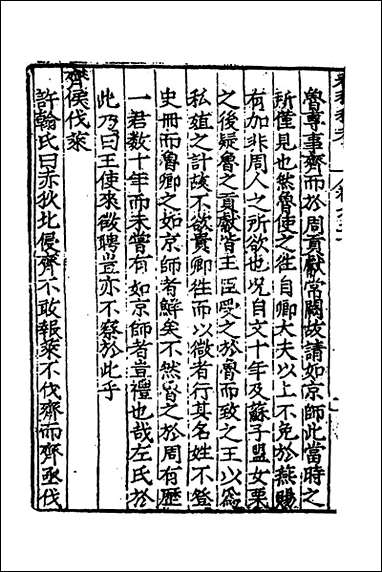 魯專事齊而於周貢獻常闕故請如京師此當時之
所僅見也然魯使之往自卿大夫以上不免於燕賜
有加非周人之所欲也况自文十年及蘇子盟女栗
之後疑魯之貢獻皆王臣受之於魯而致之王以爲
私殖之計故不欲貴卿徃而以微者行其名姓不登
史冊而魯卿之如京師者鮮矣不然魯之於周有歷
一君数十年而未嘗有如京師者豈禮也哉左氏於
此乃曰王使來徵聘豈亦不察於此乎
齊侯伐萊
許翰氏曰赤狄比侵齊不敢報萊不伐齊而齊亟伐